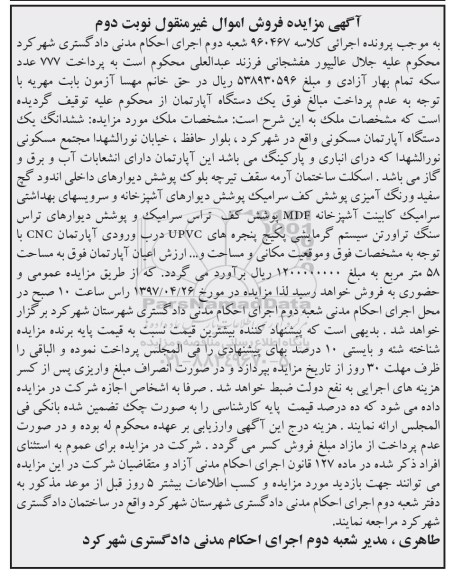 آگهی مزایده فروش اموال غیرمنقول نوبت دوم
به موجب پرونده اجرائی کلاسه ۹۶۰۴۶۷ شعبه دوم اجرای احکام مدنی دادگستری شهرکرد
محکوم علیه جلال عالیپور هفشجانی فرزند عبدالعلی محکوم است به پرداخت ۷۷۷ عدد
سکه تمام بهار آزادی و مبلغ ۵۳۸۹۳۰۵۹۶ ریال در حق خانم مهسا آزمون بابت مهریه با
توجه به عدم پرداخت مبالغ فوق یک دستگاه آپارتمان از محکوم علیه توقیف گردیده
است که مشخصات ملک به این شرح است: مشخصات ملک مورد مزایده: ششدانگ یک
دستگاه آپارتمان مسکونی واقع در شهرکرد ، بلوار حافظ ، خیابان نورالشهدا مجتمع مسکونی
نورالشهدا که درای انباری و پارکینگ می باشد این آپارتمان دارای انشعابات آب و برق و
گاز می باشد . اسکلت ساختمان آرمه سقف تیرچه بلوک پوشش دیوارهای داخلی اندود گچ
سفید ورنگ آمیزی پوشش کف سرامیک پوشش دیوارهای آشپزخانه و سرویسهای بهداشتی
سرامیک کابینت آشپزخانه MDF پوشش کف تراس سرامیک و پوشش دیوارهای تراس
سنگ تراورتن سیستم گرمایشی پکیج پنجره های UPVC درب ورودی آپارتمان CNC با
توجه به مشخصات فوق وموقعیت مکانی و مساحت و... ارزش اعیان آپارتمان فوق به مساحت
۵۸ متر مربع به مبلغ ۱۲۰۰۰۰۰۰۰۰ ریال برآورد می گردد. که از طریق مزایده عمومی و
حضوری به فروش خواهد رسید لذا مزایده در مورخ ۱۳۹۷/۰۴/۲۶ راس ساعت ۱۰ صبح در
محل اجرای احکام مدنی شعبه دوم اجرای احکام مدنی دادگستری شهرستان شهرکرد برگزار
خواهد شد . بدیهی است که پیشنهاد کننده بیشترین قیمت نسبت به قیمت پایه برنده مزایده
شناخته شئه و بایستی ۱۰ درصد بهای پیشنهادی را فی المجلس پرداخت نموده و الباقی را
ظرف مهلت ۳۰ روز از تاریخ مزایده بپردازد و در صورت انصراف مبلغ واریزی پس از کسر
هزینه های اجرایی به نفع دولت ضبط خواهد شد . صرفا به اشخاص اجازه شرکت در مزایده
داده می شود که ده درصد قیمت پایه کارشناسی را به صورت چک تضمین شده بانکی فی
المجلس ارائه نمایند . هزینه درج این آگهی وارزیابی بر عهده محکوم له بوده و در صورت
عدم پرداخت از مازاد مبلغ فروش کسر می گردد . شرکت در مزایده برای عموم به استثنای
افراد ذکر شده در ماده ۱۲۷ قانون اجرای احکام مدنی آزاد و متقاضیان شرکت در این مزایده
می توانند جهت بازدید مورد مزایده و کسب اطلاعات بیشتر ۵ روز قبل از موعد مذکور به
دفتر شعبه دوم اجرای احکام مدنی دادگستری شهرستان شهرکرد واقع در ساختمان دادگستری
شهرکرد مراجعه نمایند.
طاهری ، مدیر شعبه دوم اجرای احکام مدنی دادگستری شهرکرد